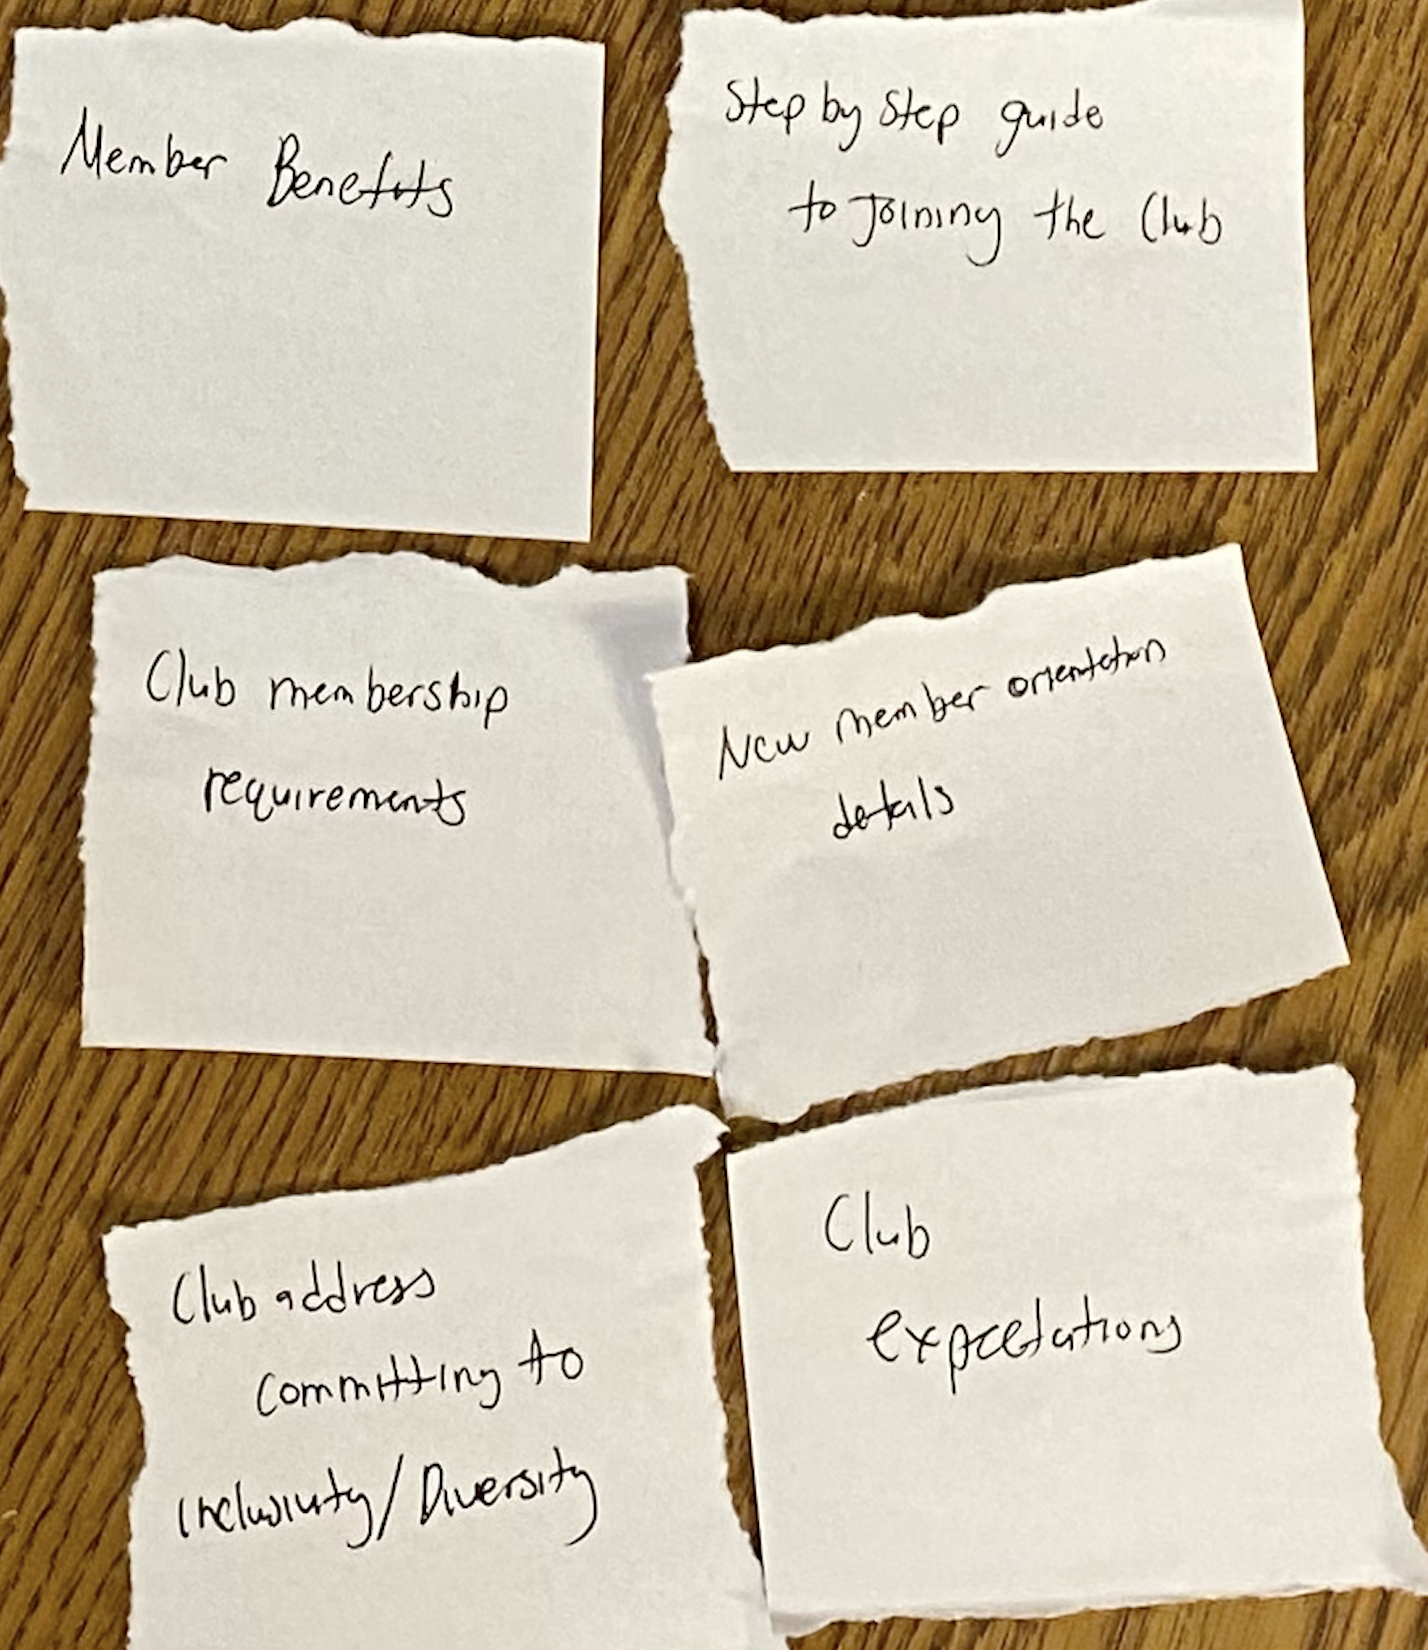 Member Benefits
Step by Step guide
to Joining the Club
Club membership
requirements
New member orientation
details
Club address
committing to
inclusivity/Diversity
Club
expectations